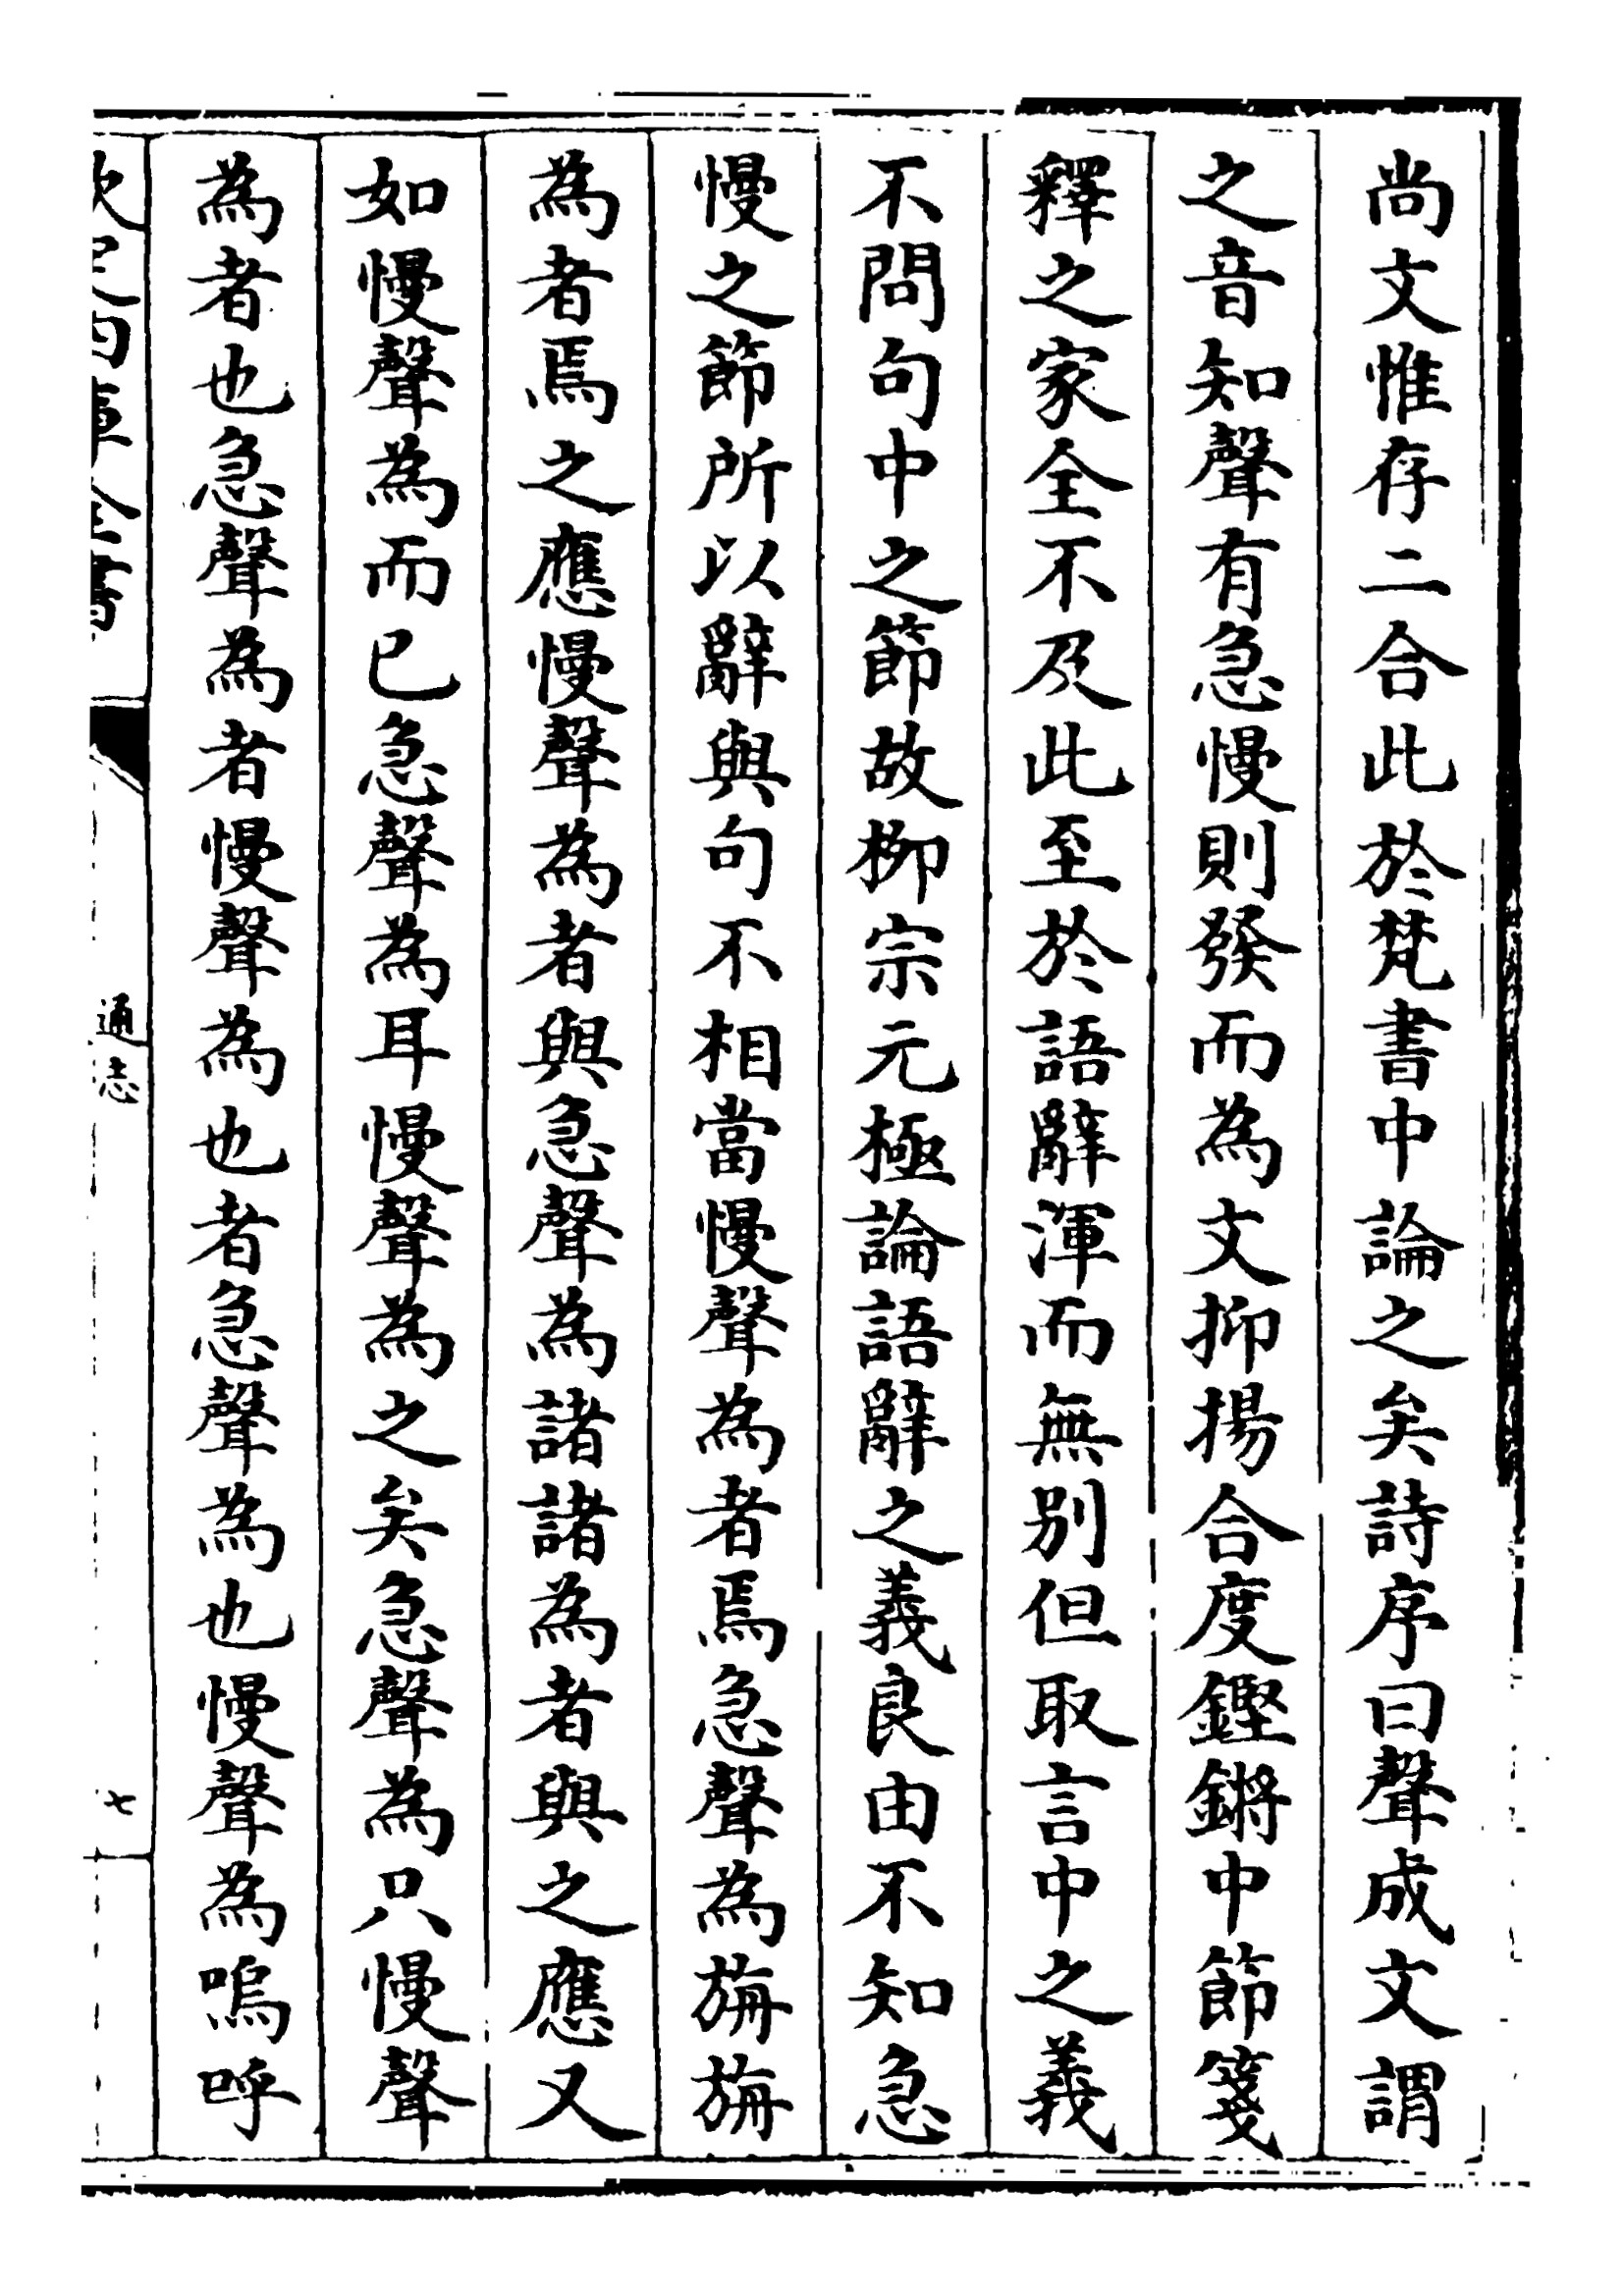 尚文惟存二合此於梵書中論之矣詩序曰聲成文謂
之音知聲有急慢則發而為文抑揚合度鏗鏘中節箋
釋之家全不及此至於語辭渾而無别但取言中之義
不問句中之節故柳宗元極論語辭之義良由不知急
慢之節所以辭與句不相當慢聲為者焉急聲為旃旃
為者焉之應慢聲為者與急聲為諸諸為者與之應又
如慢聲為而已急聲為耳慢聲為之矣急聲為只慢聲
為者也急聲為者慢聲為也者急聲為也慢聲為嗚呼
欽定四庫全書
通志
七